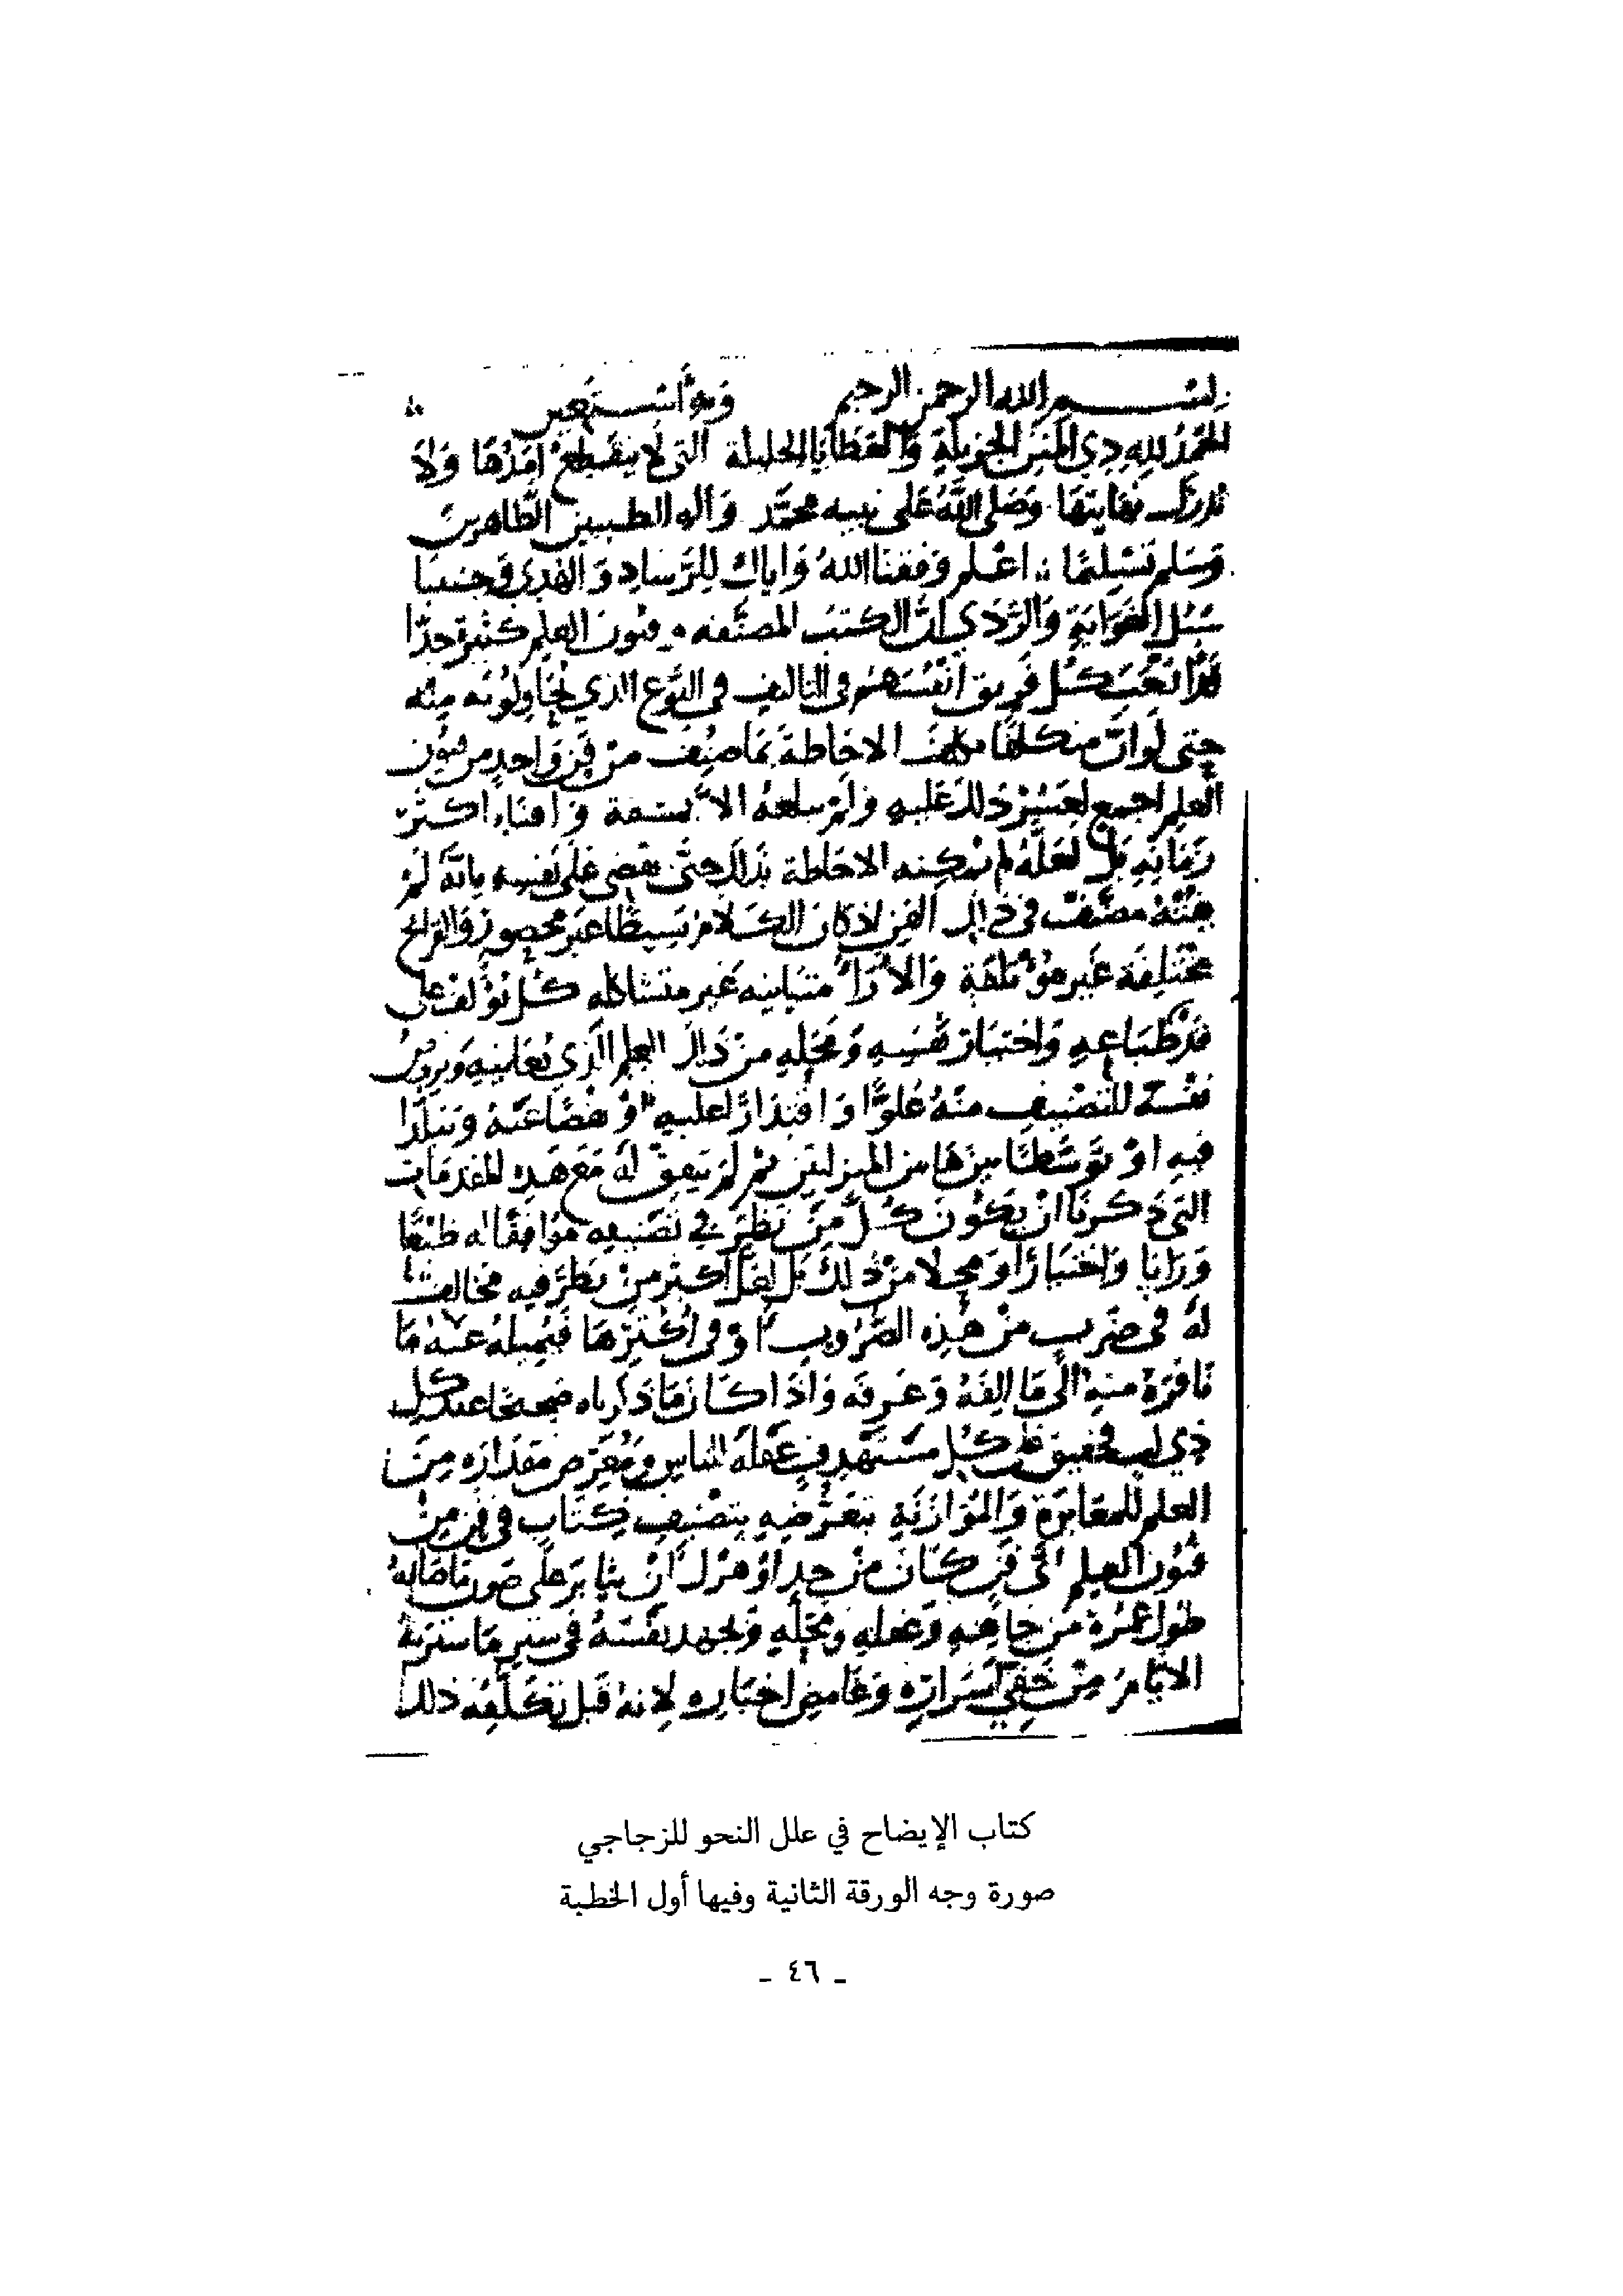 بسم الله الرحمن الرحيم وبه أستعين
الحمد لله ذي المنن الجزيلة والعطايا الجليلة التي لا ينقطع امدها ولا
تدرك نهايتها وصلى الله على نبيه محمد واله الطيبين الطاهرين
وسلم تسليما اعلم وفقنا الله واياك للرشاد والهدى وجنبنا
سبل الغواية والردى ان الكتب المصنفه فنون العلم كثيرة جدا
قد اتعب كل فريق انفسهم في التاليف في النوع الذي يحاولونه منه
حتى لو ان متكلفا الاحاطة بما صنف من فن واحد من فنون
العلم اجمع لعسر ذلك عليه ولم يبلغه الا بمشقة وافناء اكثر
زمانه بل لعله لم يمكنه الاحاطة بذلك حتى يقضي على نفسه بانه لم
يفته مصنف في ذلك الفن اذ كان الكلام بسيطا غير محصور والقرائح
مختلفة غير مؤتلفة والاراء متباينه غير متشاكله كل يؤلف على
قدر طباعه واختيار نفسه ومحله من ذلك العلم الذي يعانيه ويروض
نفسه للتصنيف منه علوا واقتدارا عليه او فضاعنه وتبلدا
فيه او توسطا بين هاتين المنزلتين ثم لم يتفق له مع هذه المقدمات
التي ذكرنا ان يكون كل من نظر في تصنيفه موافقا له طبعا
ورايا واختيارا ومحلا من ذلك بل لعل اكثر من نظر فيه مخالف
له في ضرب من هذه الضروب او في اكثرها فيميله عنه ما
نافره منه الى ما الفه وعرفه واذا كان ما ذكرناه صحيحا عند كل
ذي لب فحقيق على كل مستهدف عقله للناس ومعرض مقداره من
العلم للمعايرة والموازنة بتعرضه بتصنيف كتاب في فن من
فنون العلم اي فن كان من جد او هزل ان يثابر على صون ما صانه
طول عمره من جاهه وعقله ومحله ويجهد نفسه في ستر ما سترته
الايام من خفي اسراره وغامض اختياره لانه قبل تكلفه ذلك
كتاب الإيضاح في علل النحو للزجاجي
صورة وجه الورقة الثانية وفيها أول الخطبة
- ٤٦ -